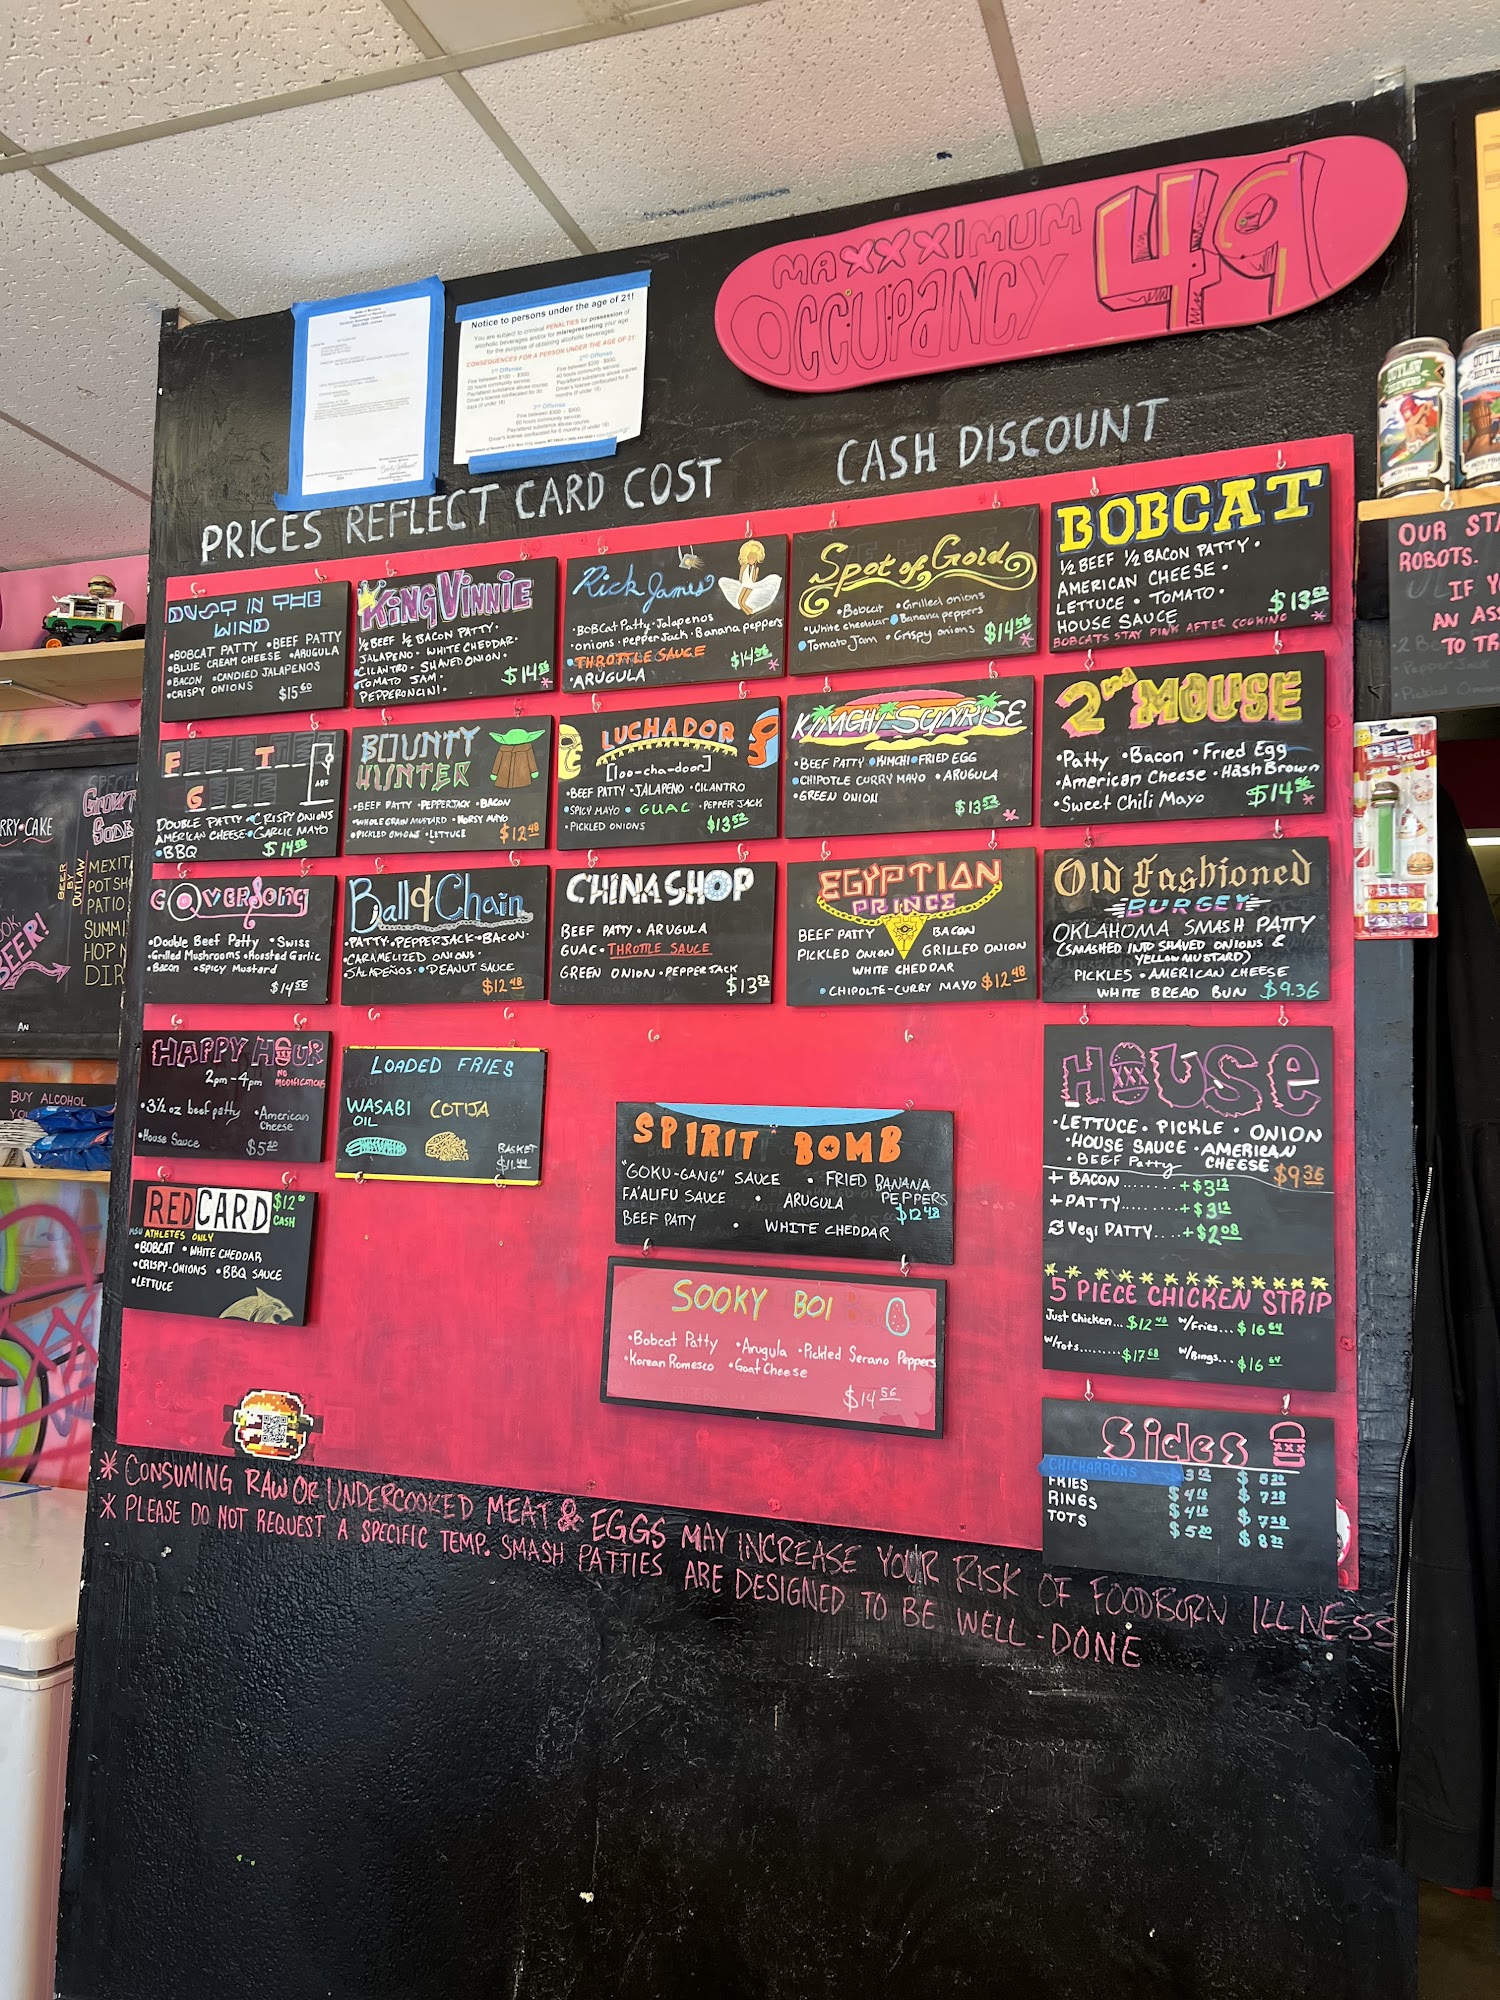 MAXXXIMUM
OCCUPANCY
49
Notice to persons under the age of 21!
You are subject to criminal PENALTIES for possession of
alcoholic beverages and/or for misrepresenting your age
for the purpose of obtaining alcoholic beverages.
CONSEQUENCES FOR A PERSON UNDER THE AGE OF 21
1st Offense
2nd Offense
3rd Offense
PRICES REFLECT CARD COST
CASH DISCOUNT
DUST IN THE
WIND
•BOBCAT PATTY •BEEF PATTY
•BLUE CREAM CHEESE •ARUGULA
•BACON •CANDIED JALAPENOS
•CRISPY ONIONS
$15 60
KING VINNIE
½ BEEF ½ BACON PATTY •
JALAPENO • WHITE CHEDDAR •
CILANTRO • SHAVED ONION •
•TOMATO JAM •
PEPPERONCINI •
$14 56 *
Rick James
•BOBCat Patty •Jalapenos
•onions •pepper Jack •Banana peppers
•THROTTLE SAUCE
•ARUGULA
$14 56 *
Spot of Gold
•Bobcat •Grilled onions
•White cheddar •Banana peppers
•Tomato Jam •Crispy onions
$14 56 *
BOBCAT
½ BEEF ½ BACON PATTY •
AMERICAN CHEESE •
LETTUCE • TOMATO •
HOUSE SAUCE
$13 52 *
BOBCATS STAY PINK AFTER COOKING
F T
G
ADS
DOUBLE PATTY •CRISPY ONIONS
AMERICAN CHEESE •GARLIC MAYO
•BBQ
$14 56
BOUNTY
HUNTER
•BEEF PATTY •PEPPERJACK •BACON
•WHOLE GRAIN MUSTARD •HORSY MAYO
•PICKLED ONIONS •LETTUCE
$12 48
LUCHADOR
[loo-cha-door]
•BEEF PATTY •JALAPENO •CILANTRO
•SPICY MAYO • GUAC • PEPPER JACK
•PICKLED ONIONS
$13 52
KIMCHI SUNRISE
•BEEF PATTY •KIMCHI •FRIED EGG
•CHIPOTLE CURRY MAYO •ARUGULA
•GREEN ONION
$13 52
*
2nd MOUSE
•Patty •Bacon •Fried Egg
•American Cheese •Hash Brown
•Sweet Chili Mayo
$14 56 *
COVERSONG
•Double Beef Patty •Swiss
•Grilled Mushrooms •Roasted Garlic
•Bacon •Spicy Mustard
$14 56
Ball & Chain
•PATTY •PEPPERJACK •BACON•
•CARAMELIZED ONIONS•
•JALAPEÑOS •PEANUT SAUCE
$12 48
CHINA SHOP
BEEF PATTY • ARUGULA
GUAC • THROTTLE SAUCE
GREEN ONION • PEPPER JACK
$13 52
EGYPTIAN
PRINCE
BEEF PATTY BACON
PICKLED ONION GRILLED ONION
WHITE CHEDDAR
•CHIPOLTE-CURRY MAYO $12 48
Old Fashioned
BURGEY
OKLAHOMA SMASH PATTY
(SMASHED INTO SHAVED ONIONS &
YELLOW MUSTARD)
PICKLES • AMERICAN CHEESE
WHITE BREAD BUN $9.36
HAPPY HOUR
2pm-4pm NO
MODIFICATIONS
•3½ oz beef patty •American
Cheese
•House Sauce $5 20
LOADED FRIES
WASABI COTIJA
OIL
BASKET
$11.44
SPIRIT BOMB
"GOKU-GANG" SAUCE • FRIED BANANA
PEPPERS
FA'ALIFU SAUCE • ARUGULA
$12 48
BEEF PATTY • WHITE CHEDDAR
HOUSE
•LETTUCE • PICKLE • ONION
•HOUSE SAUCE • AMERICAN
CHEESE
•BEEF Patty $9 36
+ BACON........+$3 12
+PATTY........+$3 12
Vegi PATTY....+$2 08
5 PIECE CHICKEN STRIP
Just Chicken... $12 48 w/Fries... $16 64
w/Tots........ $17 68 w/Rings... $16 64
RED CARD $12
CASH
MSU ATHLETES ONLY
•BOBCAT •WHITE CHEDDAR
•CRISPY-ONIONS •BBQ SAUCE
•LETTUCE
SOOKY BOI
•Bobcat Patty •Arugula •Pickled Serano Peppers
•Korean Romesco •Goat Cheese
$14 56
Sides
XXX
CHICHARRONS 3 12 $5 20
FRIES $4 16 $7 28
RINGS $4 16 $7 28
TOTS $5 20 $8 32
* CONSUMING RAW OR UNDERCOOKED MEAT & EGGS MAY INCREASE YOUR RISK OF FOODBORN ILLNESS
* PLEASE DO NOT REQUEST A SPECIFIC TEMP. SMASH PATTIES ARE DESIGNED TO BE WELL-DONE
RRY•CAKE
BEER
BY
OUTLAW
MEXIT
POTSH
PATIO
SUMM
HOP N
DIR
BEER!
AN
BUY ALCOHOL
YO
OUTLAW
BREWING
OUR STA
ROBOTS.
IF Y
AN ASS
TO TR
PEZ
Treats
PEZ